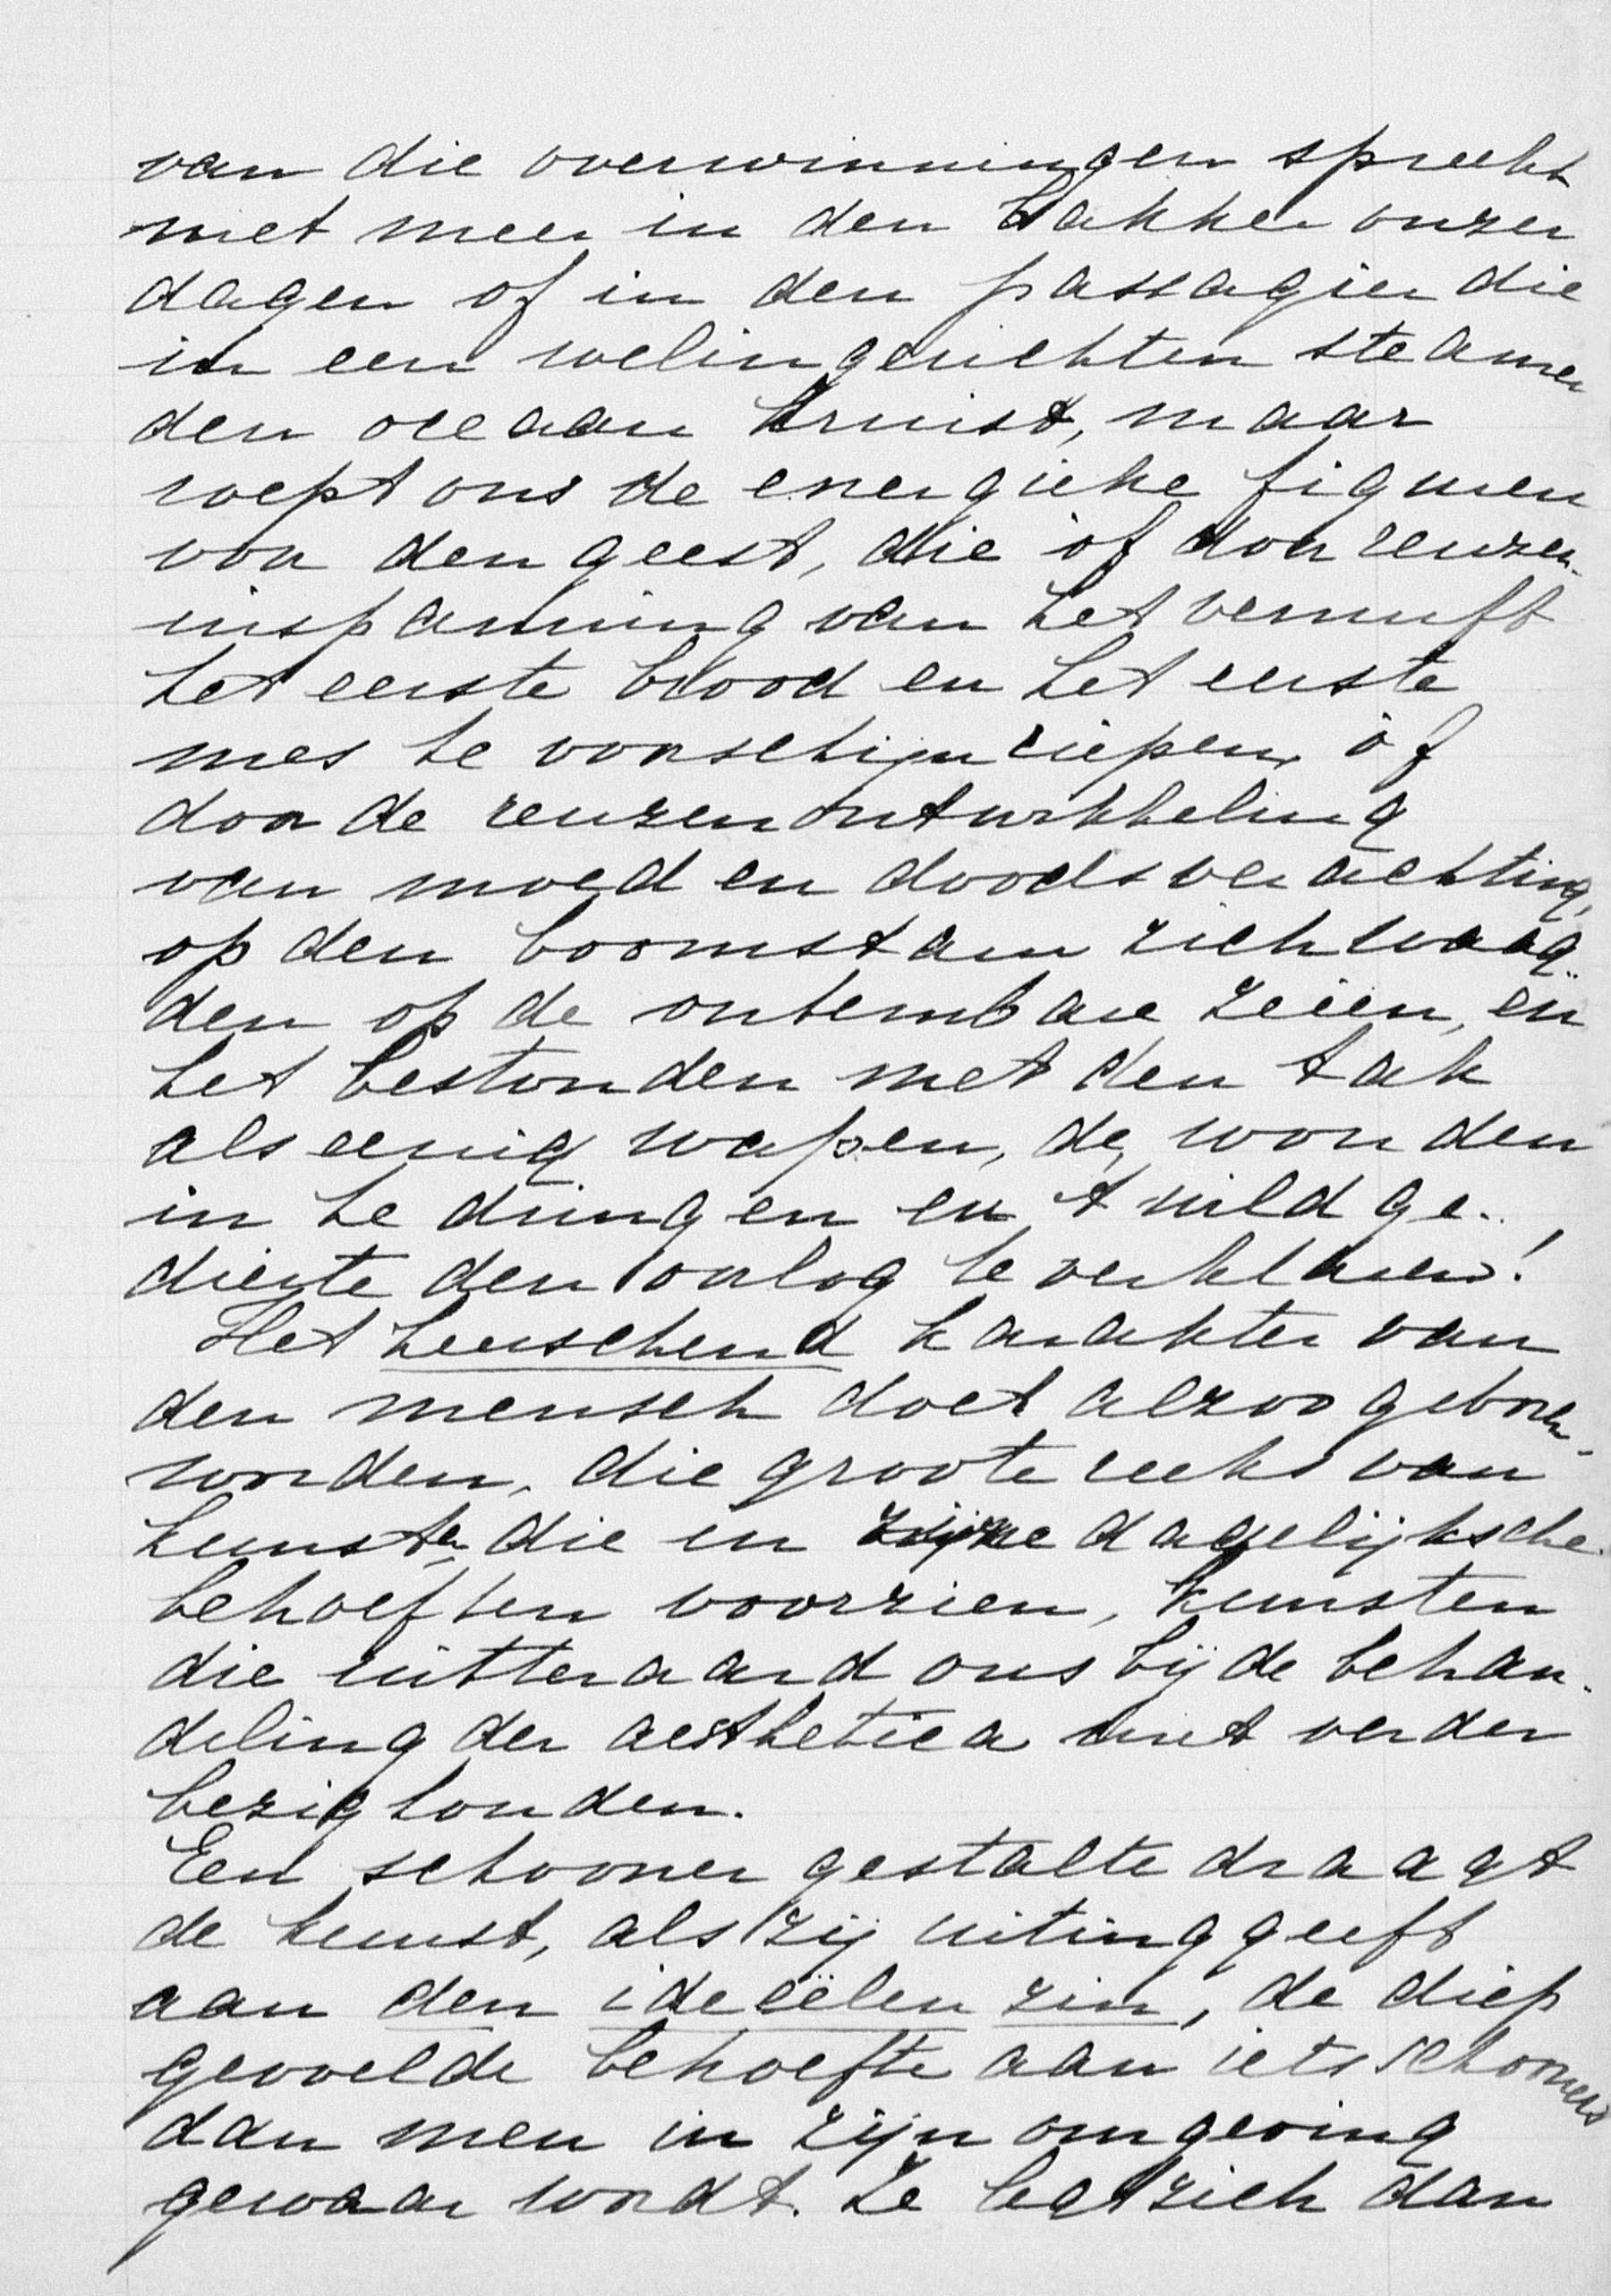 van die overwinningen spreekt
niet meer in den bakker onzer
dagen of in den passagier die
in een welingerichten steamer
den oceaan kruist, maar
roept ons de energieke figuren
voor den geest, die òf door reuzen-
inspanning van het vernuft
het eerste brood en het eerste
mes te voorschijn riepen, òf
door de reuzenontwikkeling
van moed en doodsverachting,
op den boomstam zich waag-
den op de ontembare zeeën, en
het bestonden met den tak
als eenig wapen, de wouden
in te dringen en 't wild ge-
dierte den oorlog te verklaren!
Het heerschend karakter van
den mensch doet alzoo geboren
worden, die groote reeks van
kunsten, die in zijne dagelijksche
behoeften voorzien, kunsten
die uitteraard ons bij de behan-
deling der aesthetica niet verder
bezig houden.
Een schooner gestalte draagt
de kunst, als zij uiting geeft
aan den ideeëlen zin, de diep
gevoelde behoefte aan iets schooners
dan men in zijn omgeving
gewaar wordt. Ze legt zich dan